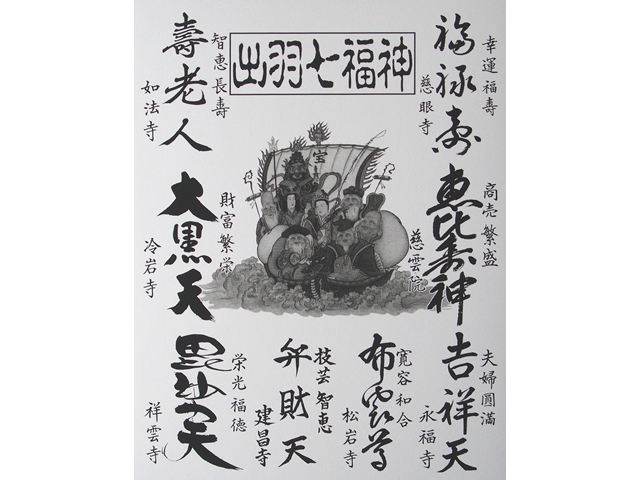 出羽七福神
幸運福寿
福禄寿
慈眼寺
商売繁盛
恵比寿神
慈雲院
夫婦圓満
吉祥天
永福寺
寛容和合
布袋尊
松岩寺
技芸智恵
弁財天
建昌寺
智恵長寿
壽老人
如法寺
財富繁栄
大黒天
冷岩寺
栄光福徳
毘沙天
祥雲寺
宝